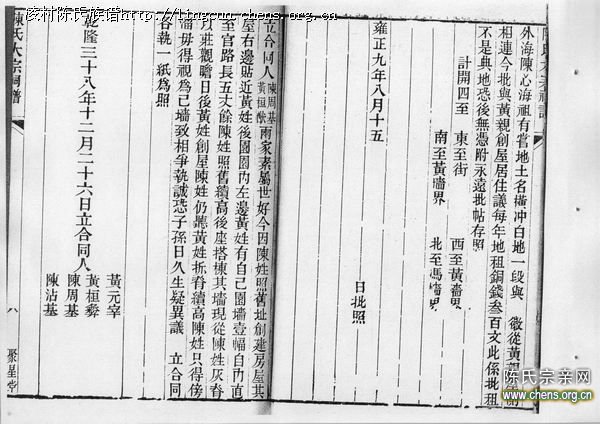 凌村陈氏族谱http://lingcun-chens.org.cn
外海陳心海祖有嘗地土名橫冲白地一段與
相連今批與黃親創屋居住議每年地租銅錢叁百文此係批租
不是典地恐後無憑附永遠批帖存照
計開四至 東至街 西至黃牆界
南至黃牆界 北至馮牆界
雍正九年八月十五 日批照
立合同人陳周基黃桓 兩家素屬世好今因陳姓照舊址創建房屋其
屋右邊貼近黃姓後園園內左邊黃姓有自己園墻壹幅自內直
至官路長五丈餘陳姓照舊續高後座搭棟其墻現從陳姓灰脊
灯莊觀瞻日後黃姓創屋陳姓仍聽黃姓拆脊續高陳姓只得傍
墻毋得視為已墻致相爭執誠恐子孫日久生疑異議 立合同
各執一紙為照
乾隆三十八年十二月二十六日立合同人
黃元宰
黃桓
陳周基
陳沾基
陳氏大宗祠譜
八
聚星堂
陈氏宗亲网
www.chens.org.cn